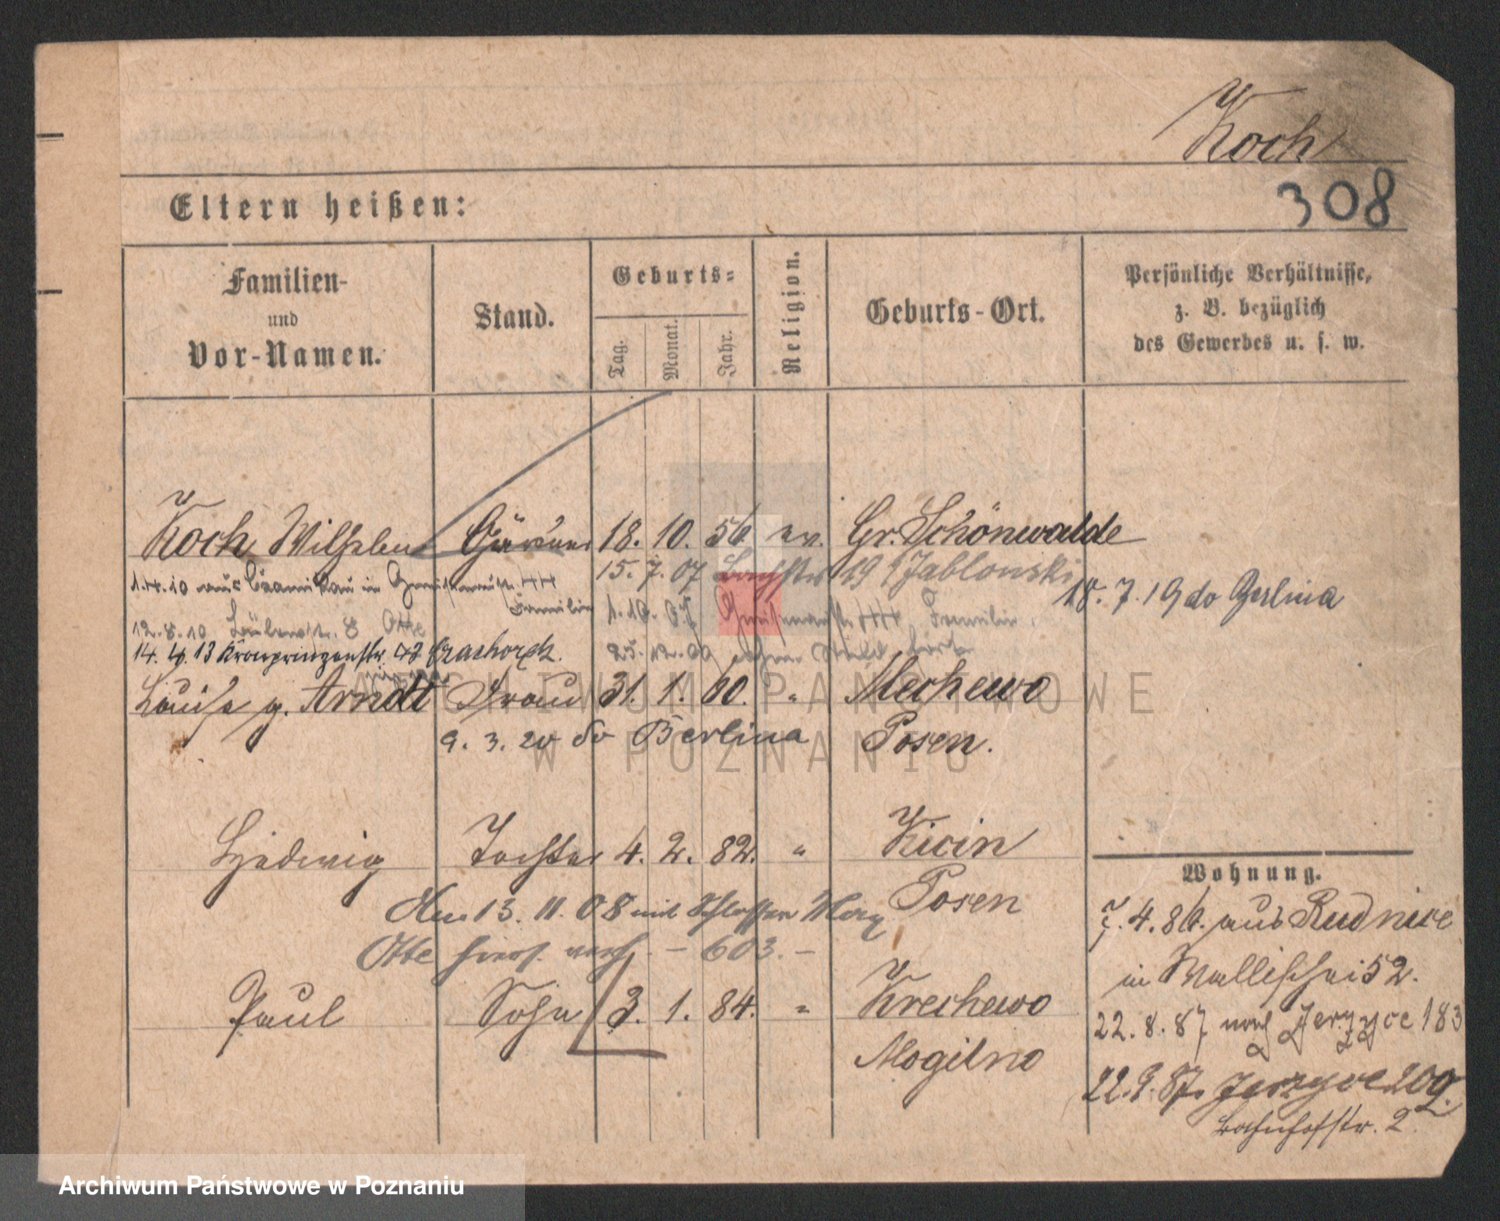 Koch
308
Eltern heißen:
Familien-
und
Vor-Namen.
Stand.
Geburts-
Tag.
Monat.
Jahr.
Religion.
Geburts-Ort.
Persönliche Verhältnisse,
z. B. bezüglich
des Gewerbes u. s. w.
Koch Wilhelm Gärtner 18. 10. 56. ev. Gr. Schönwalde
15. 7. 07 19 Jablonski
1.4.10 aus in
Familie
18. 7. 19 do Berlina
1. 10. 07 Familie
12. 8. 10 8 Otte
14. 4. 13 Kronprinzenstr. 48
Luise g. Arndt Frau 31. 1. 60. " Mechewo
Posen.
9. 3. 20 do Berlina
Hedwig Tochter 4. 2. 82. " Kicin
Posen
13. 11. 08 mit Schlosser Max
Otte 603.
Paul Sohn 3. 1. 84. " Krechewo
Mogilno
Wohnung.
7. 4. 86. aus Rudnice
in Wallischei 52.
22. 8. 87 nach Jerzyce 183
22. 9. 87. Jerzyce 209.
Bahnhofstr. 2
ARCHIWUM PAŃSTWOWE
W POZNANIU
Archiwum Państwowe w Poznaniu